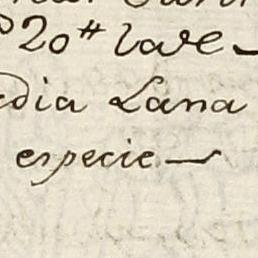 20 # vale
edia Lana
especie